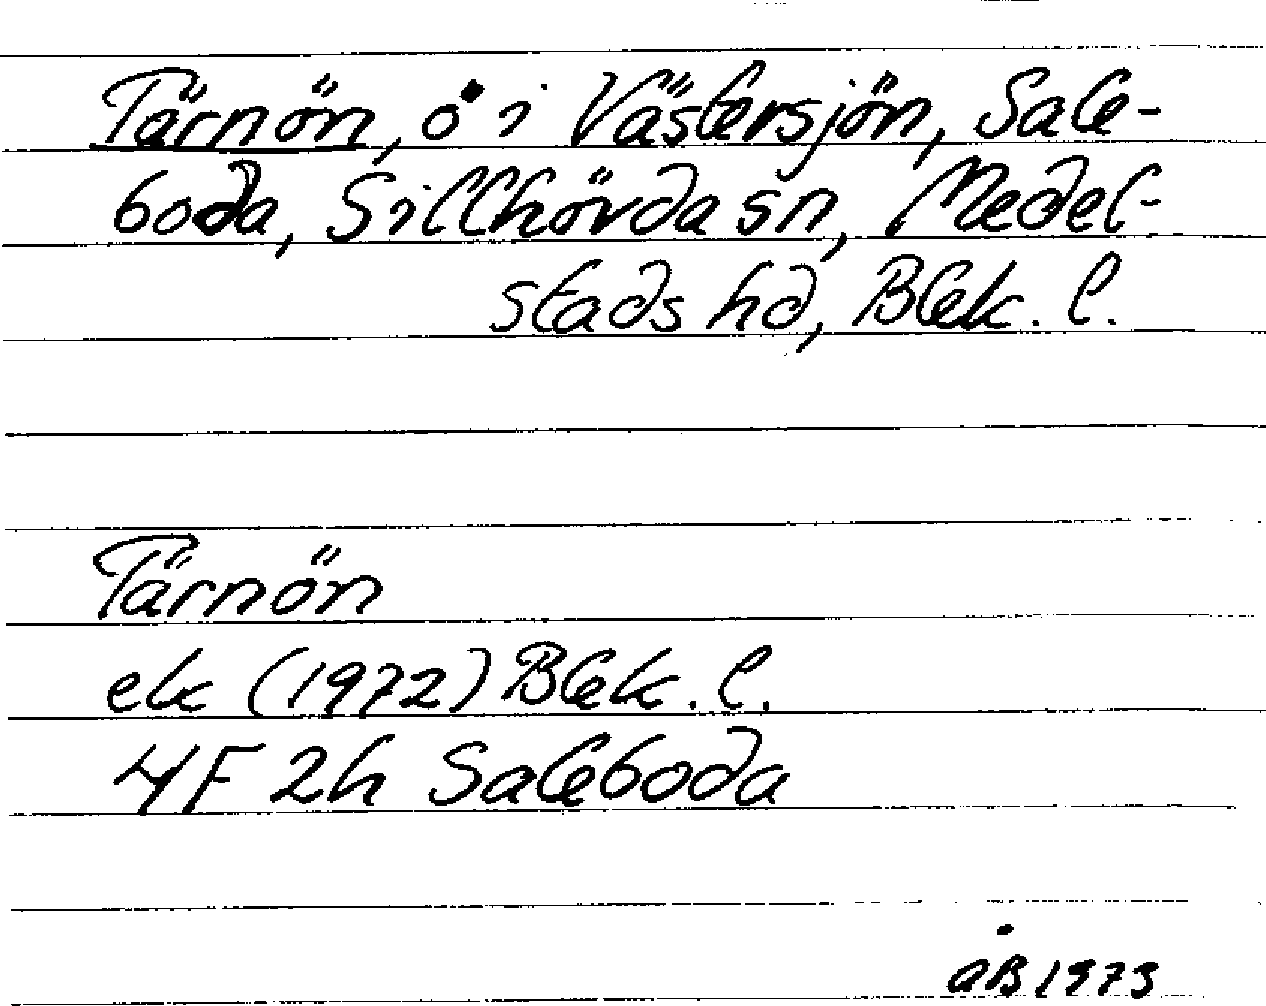 Tärnön, ö i Västersjön, Sale-
boda, Sillhövda sn, Medel-
stads hd, Blek. l.
Tärnön
ek (1972) Blek. l.
4F 2h Saleboda
åB 1973